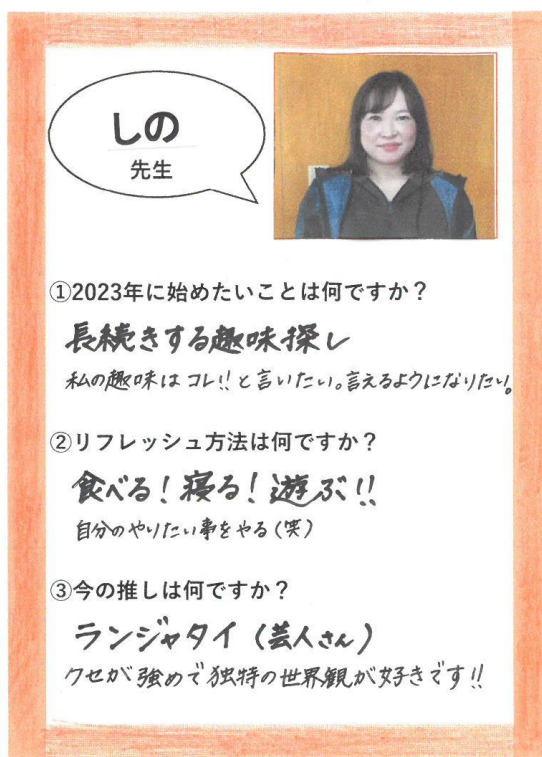 しの
先生
①2023年に始めたいことは何ですか？
長続きする趣味探し
私の趣味は コレ!! と言いたい。言えるようになりたい。
②リフレッシュ方法は何ですか？
食べる！寝る！遊ぶ!!
自分のやりたい事をやる(笑)
③今の推しは何ですか？
ランジャタイ（芸人さん）
クセが強めで独特の世界観が好きです!!